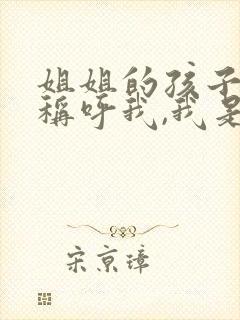 姐姐的孩子
稱呼我,我是
宋京璋